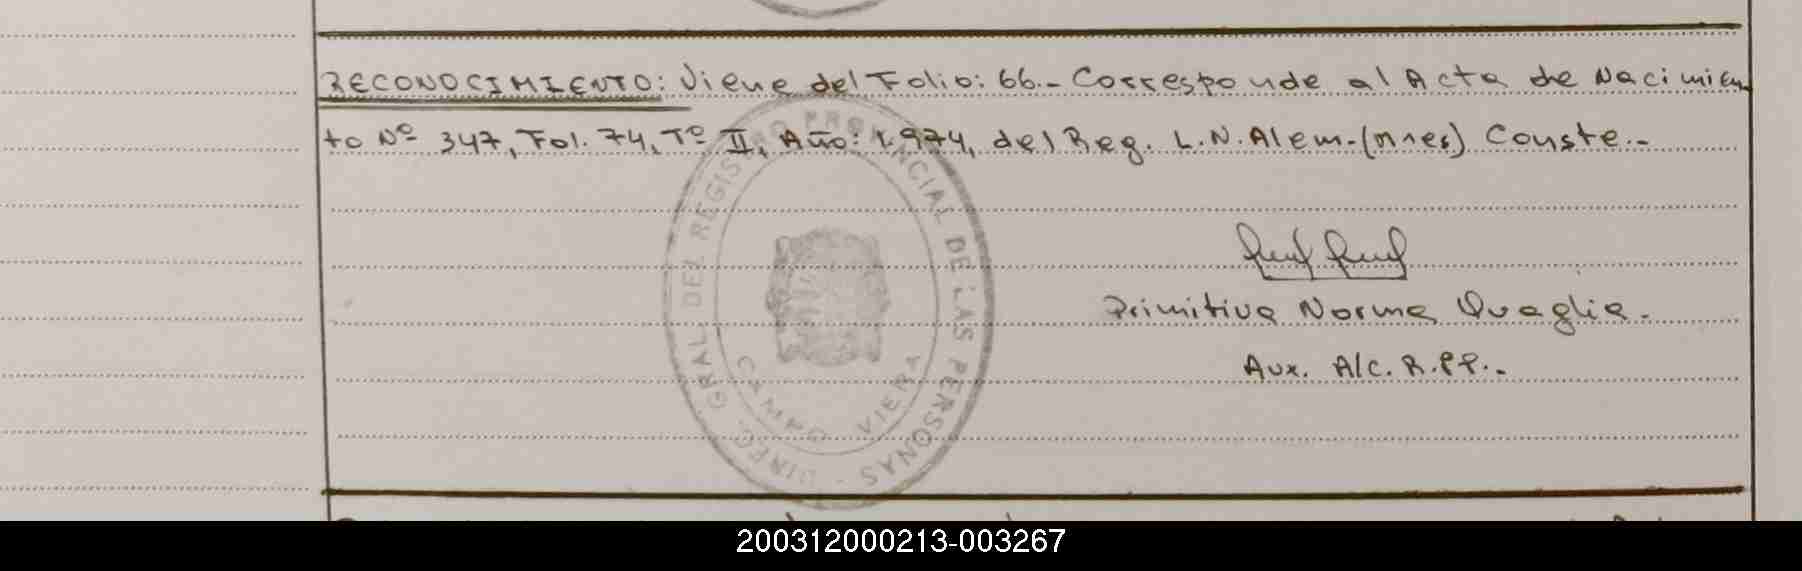 RECONOCIMIENTO: Viene del Folio: 66.- Corresponde al Acta de Nacimien
to Nº 347, Fol. 74, Tº II, Año: 1.974, del Reg. L.N. Alem.-(Mnes) Conste.-
DIREC. GRAL DEL REGISTRO PROVINCIAL DE LAS PERSONAS -
CAMPO VIERA
Primitiva Norma Quaglia.
Aux. A/c. R.PP.-
200312000213-003267